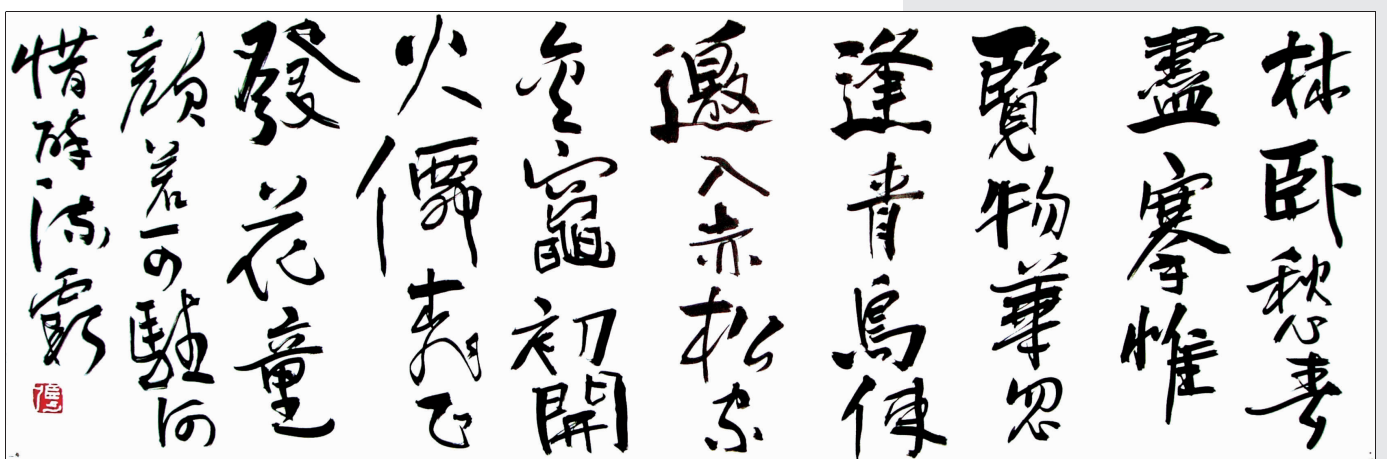 林卧愁春
盡搴帷
覽物華忽
逢青鳥使
邀入赤松家
金竈初開
火僊桃正
發花童
顏若可駐何
惜醉流霞